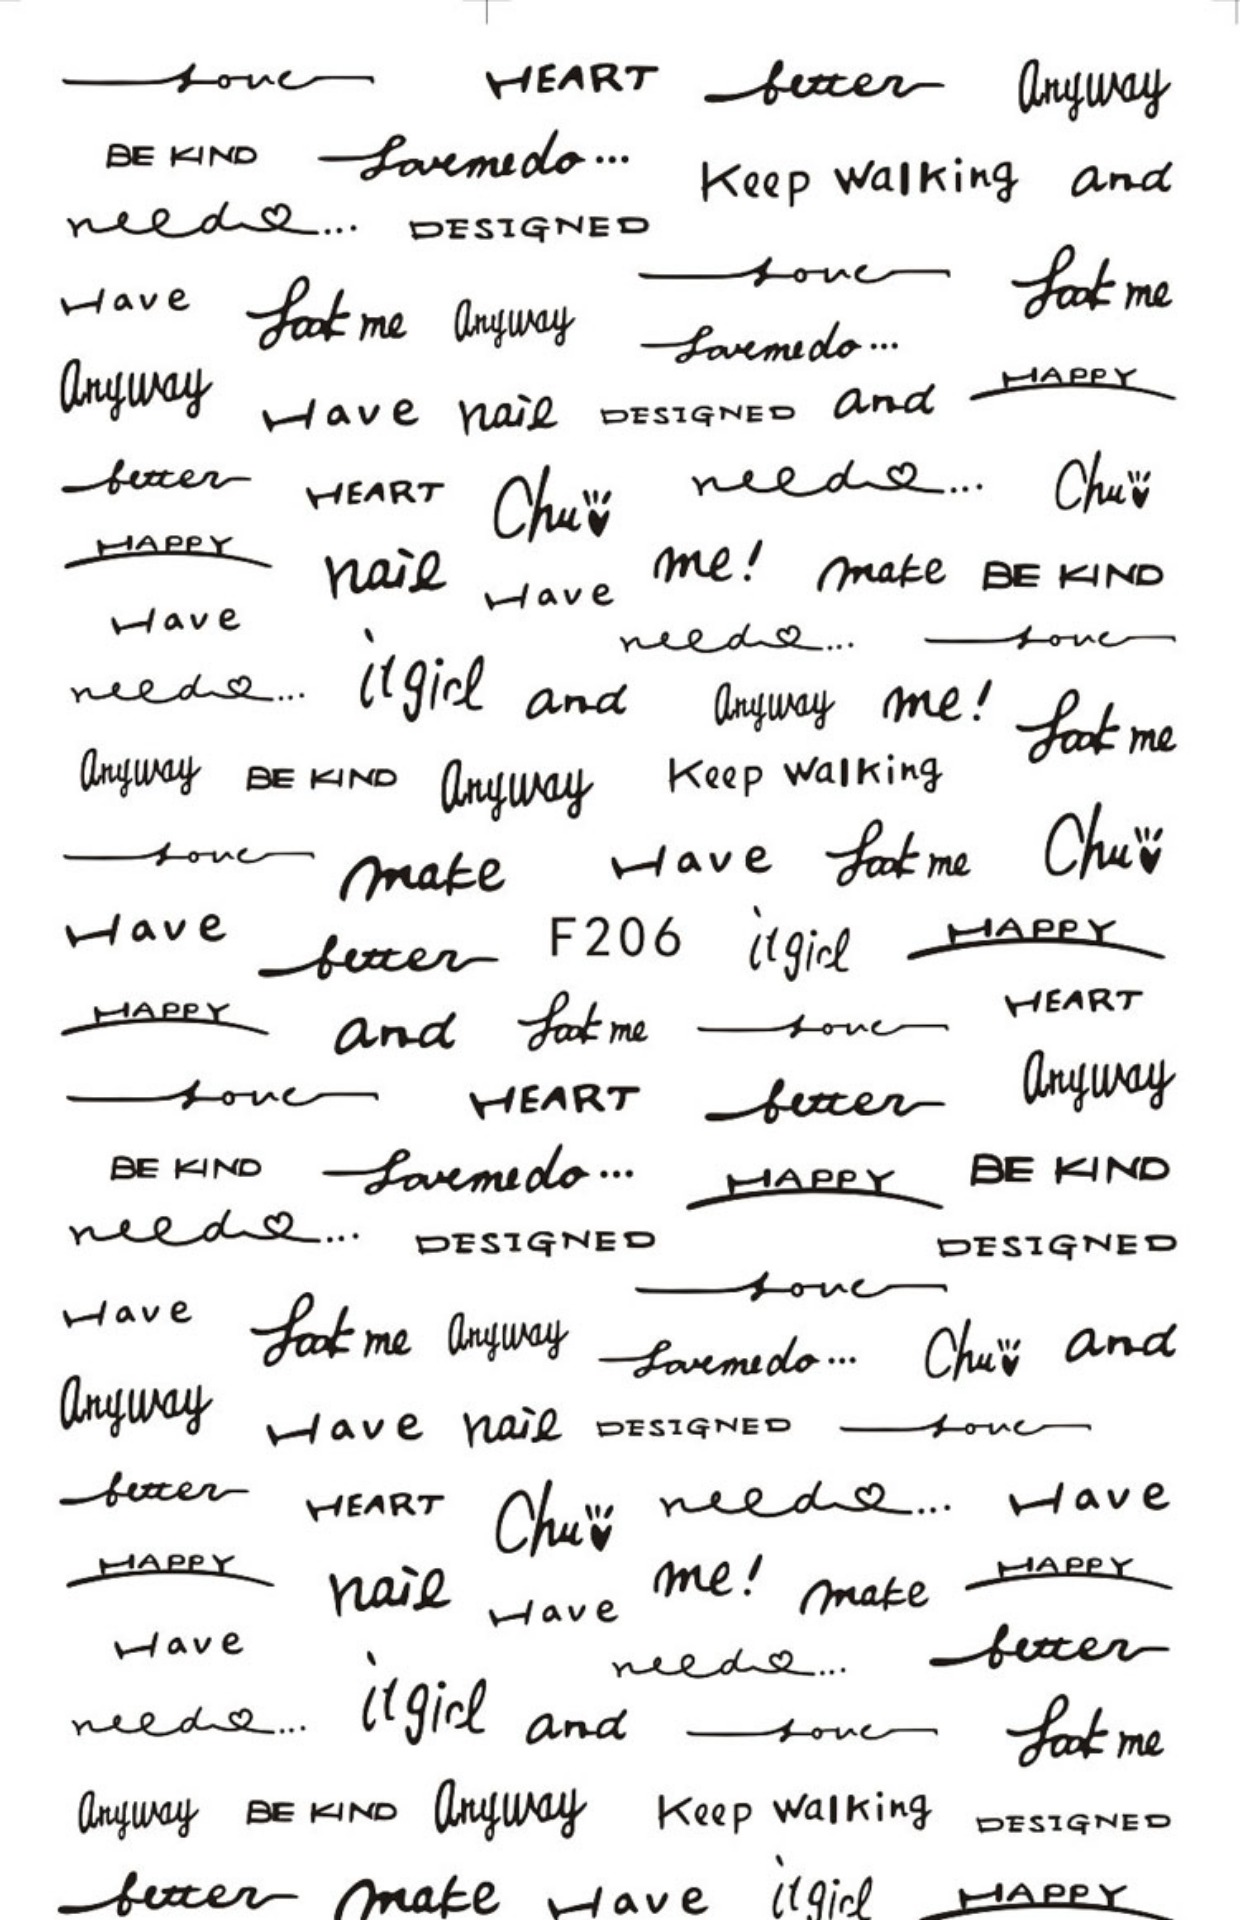 Love HEART better Anyway
BE KIND Lovemedo...
Keep walking and
need... DESIGNED
Love Look me
Have Look me Anyway
Lovemedo...
Anyway HAPPY
Have nail DESIGNED and
better HEART Chu need... Chu
HAPPY nail Have me! make BE KIND
Have need... Love
need... it girl and Anyway me! Look me
Anyway BE KIND Anyway Keep walking
Love make Have Look me Chu
Have better F206 it girl HAPPY
HAPPY and Look me Love HEART
Love HEART better Anyway
BE KIND Lovemedo... HAPPY BE KIND
need... DESIGNED DESIGNED
Love
Have Look me Anyway Lovemedo... Chu and
Anyway Have nail DESIGNED Love
better HEART Chu need... Have
HAPPY nail Have me! make HAPPY
Have need... better
need... it girl and Love Look me
Anyway BE KIND Anyway Keep walking DESIGNED
better make Have it girl HAPPY